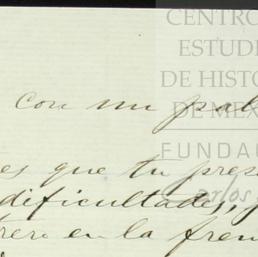 CENTRO
ESTUDI
DE HISTO
DE MEX
FUNDAC
con mi pal
es que tu prep
dificultades,
en la fren